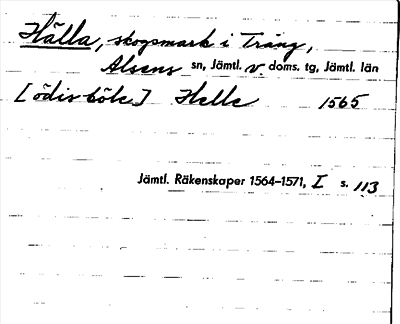 Hälla, skogsmark i Trång,
Alsens sn, Jämtl. v. doms. tg, Jämtl. län
[ödisböle] Helle 1565
Jämtl. Räkenskaper 1564–1571, I s. 113